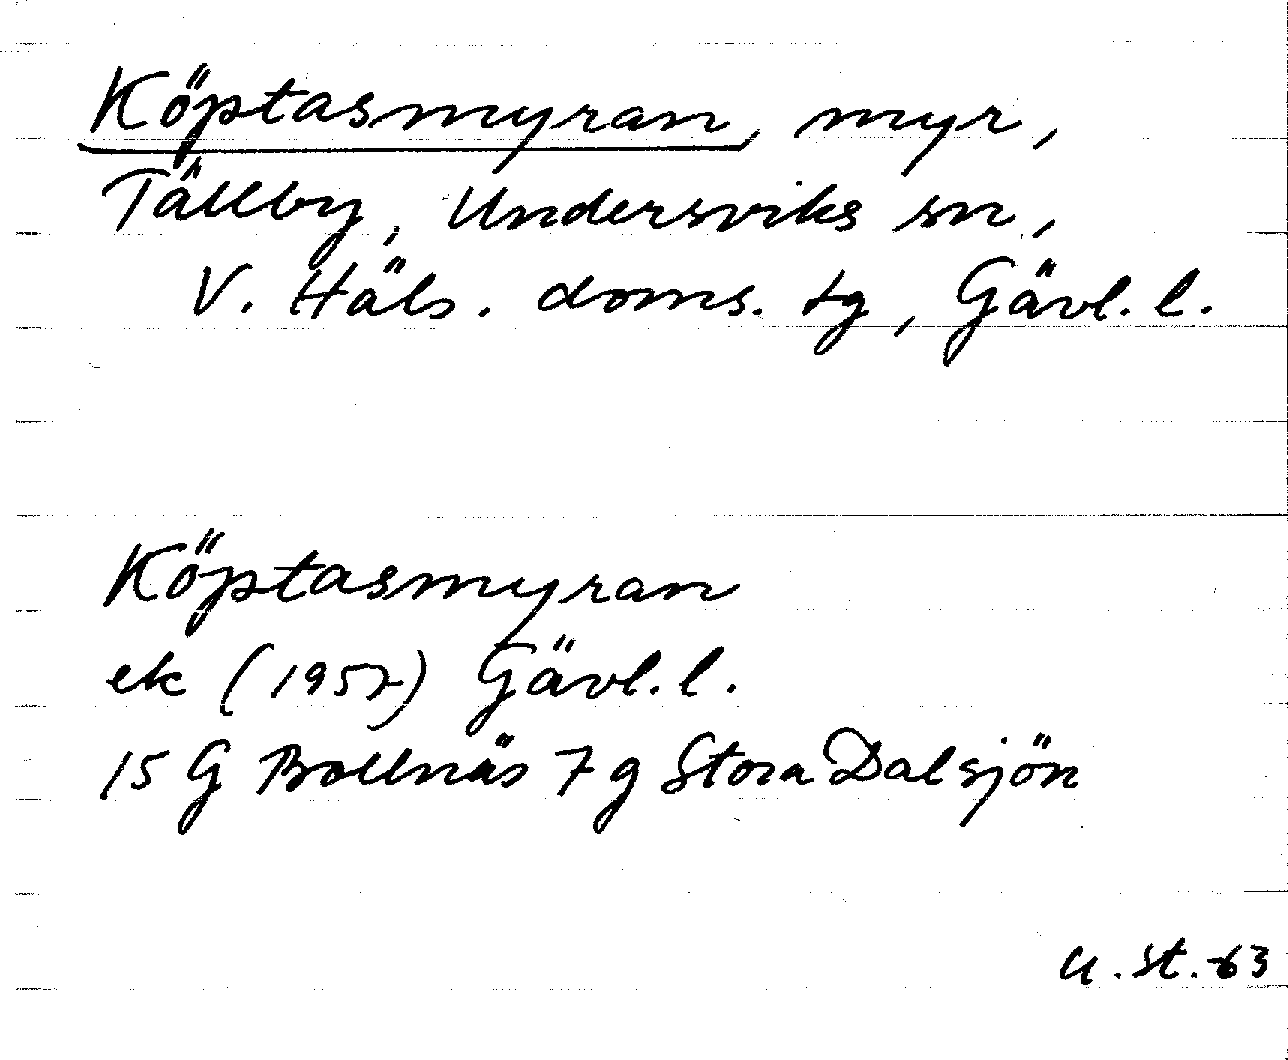 Köptasmyran, myr,
Tällby, Undersviks sn,
V. Häls. doms. tg, Gävl. l.
Köptasmyran
ek (1957) Gävl. l.
15 G Bollnäs 7 g Stora Dalsjön
U. St. -63